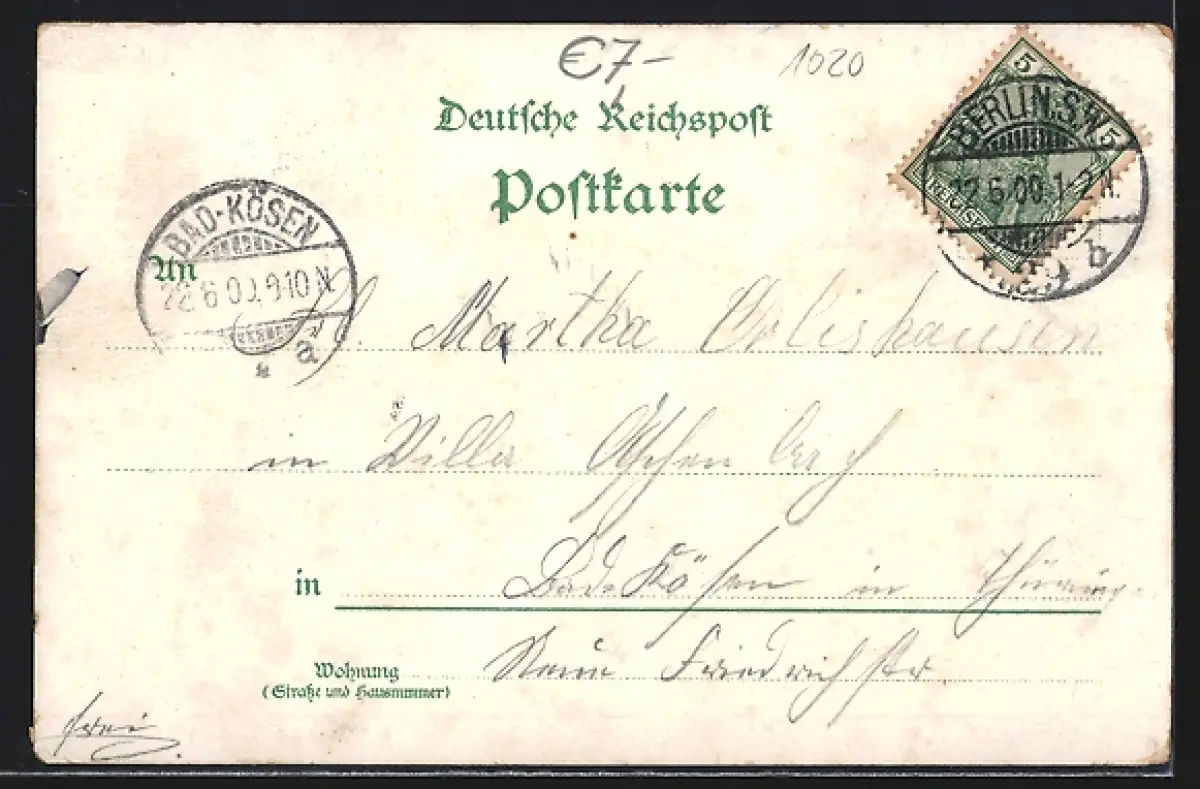 €7-
1020
Deutsche Reichspost
Postkarte
5 5
BERLIN.S.W.
22.6.00.1-2N.
b
BAD-KÖSEN
22 6 00 9-10 N
a
An
Frl. Martha
in Villa
in Bad Kösen in Thüring.
Wohnung Neue Friedrichstr.
(Straße und Hausnummer)
frei